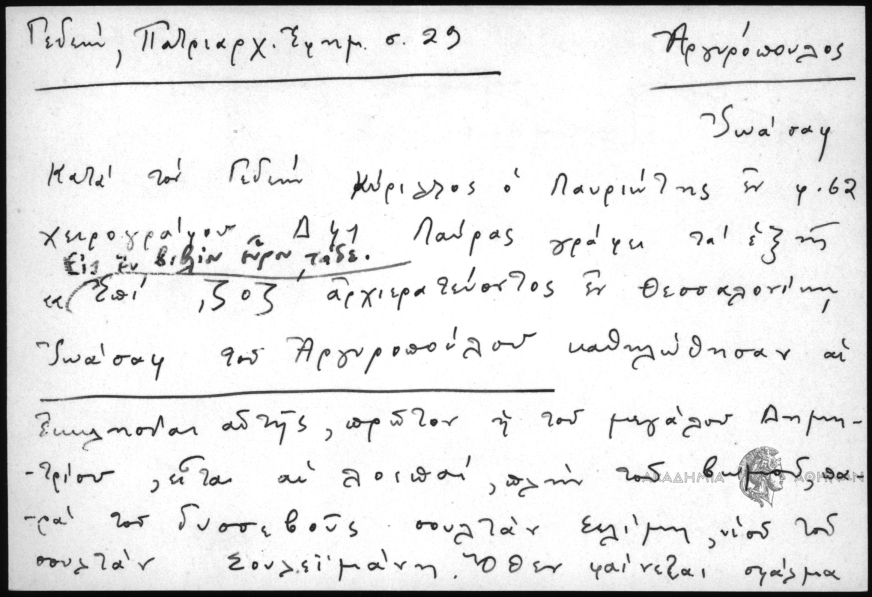 Γεδεών, Πατριαρχ. Ἐφημ. σ. 29
Ἀργυρόπουλος
Ἰωάσαφ
Κατά τόν Γεδεών Κύριλλος ὁ Λαυριώτης ἐν φ. 62
χειρογράφου Δ 41 Λαύρας γράφει τά ἑξῆς
Εἰς ἕν βιβλίον εὗρον τάδε.
« Ἐπί ͵ζοζ ἀρχιερατεύοντος ἐν Θεσσαλονίκῃ,
Ἰωάσαφ τοῦ Ἀργυροπούλου καθηλώθησαν αἱ
Ἐκκλησίαι αὐτῆς, πρῶτον ἡ τοῦ μεγάλου Δημη-
-τρίου, εἶται αἱ λοιπαί, πλήν τοῦ, πα-
-ρά τοῦ δυσσεβοῦς σουλτάν Σελίμη, υἱοῦ τοῦ
σουλτάν Σουλεϊμάνη. Ὅθεν φαίνεται σφάλμα
ΑΚΑΔΗΜΙΑ ΑΘΗΝΩΝ